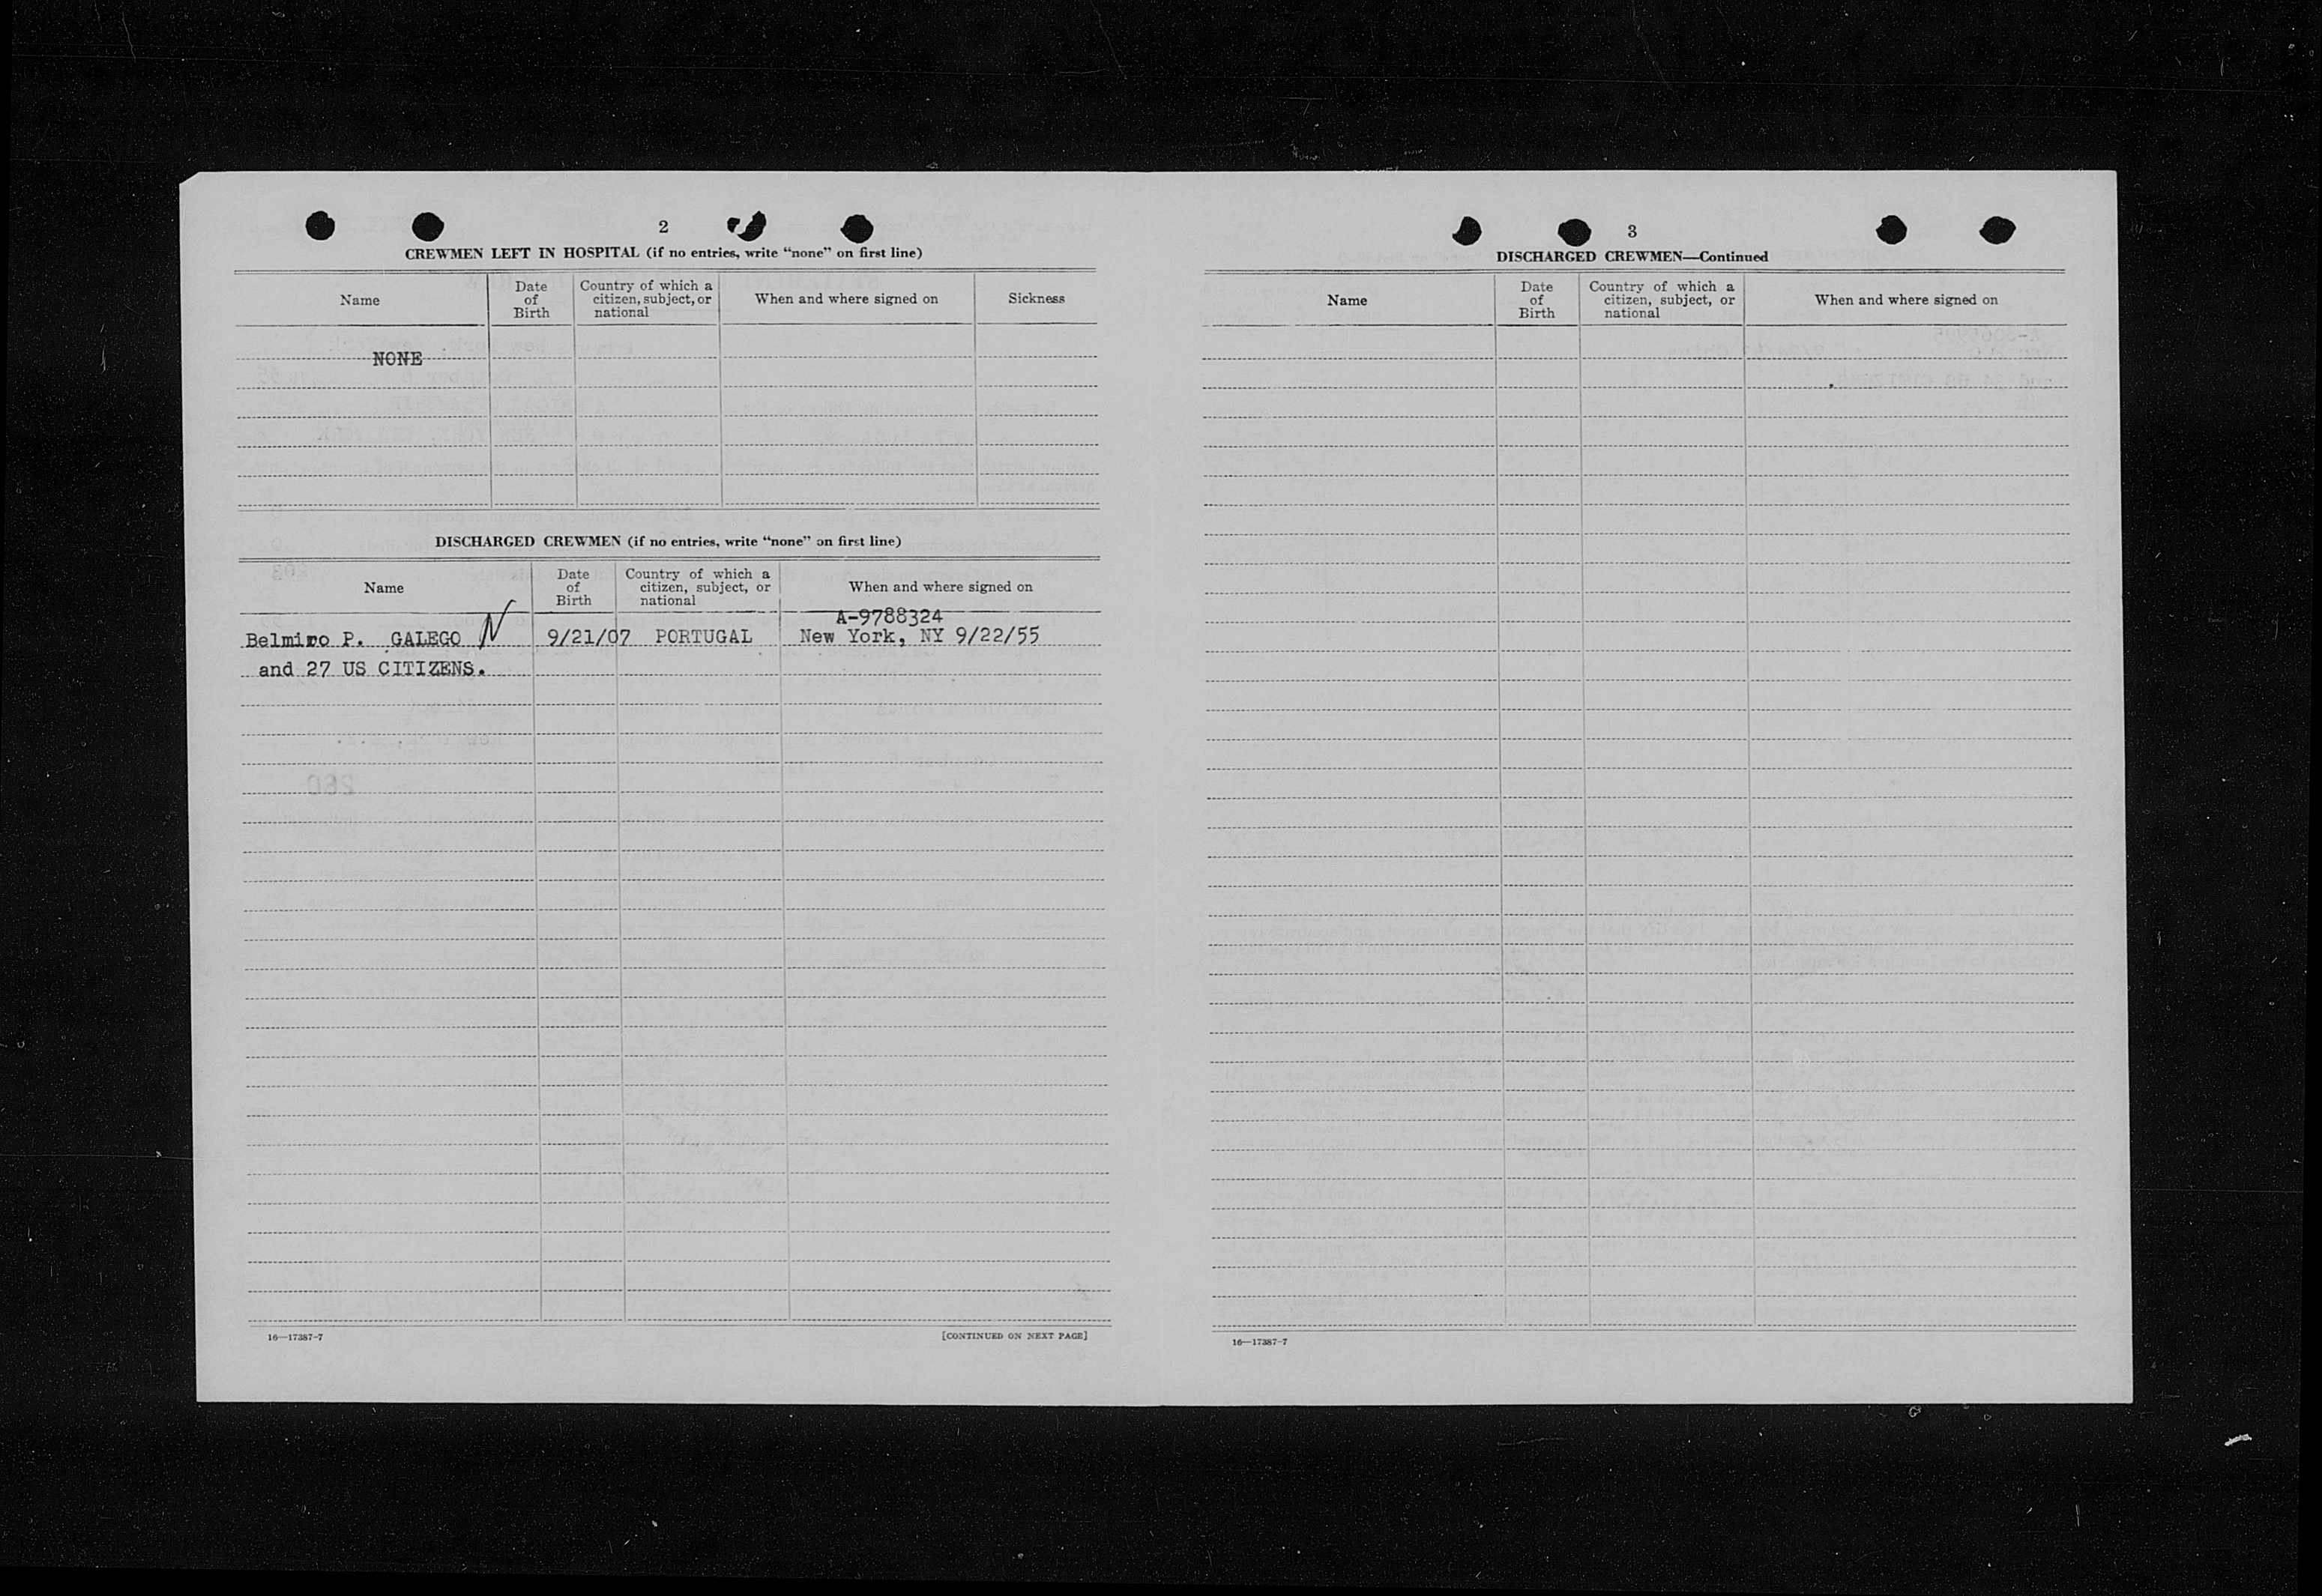 2
CREWMEN LEFT IN HOSPITAL (if no entries, write “none” on first line)
Name
Date of Birth
Country of which a citizen, subject, or national
When and where signed on
Sickness
NONE
DISCHARGED CREWMEN (if no entries, write “none” on first line)
Name
Date of Birth
Country of which a citizen, subject, or national
When and where signed on
A-9788324
Belmiro P. GALEGO N 9/21/07 PORTUGAL New York, NY 9/22/55
and 27 US CITIZENS.
16—17387-7
[CONTINUED ON NEXT PAGE]
3
DISCHARGED CREWMEN—Continued
Name
Date of Birth
Country of which a citizen, subject, or national
When and where signed on
16—17387-7